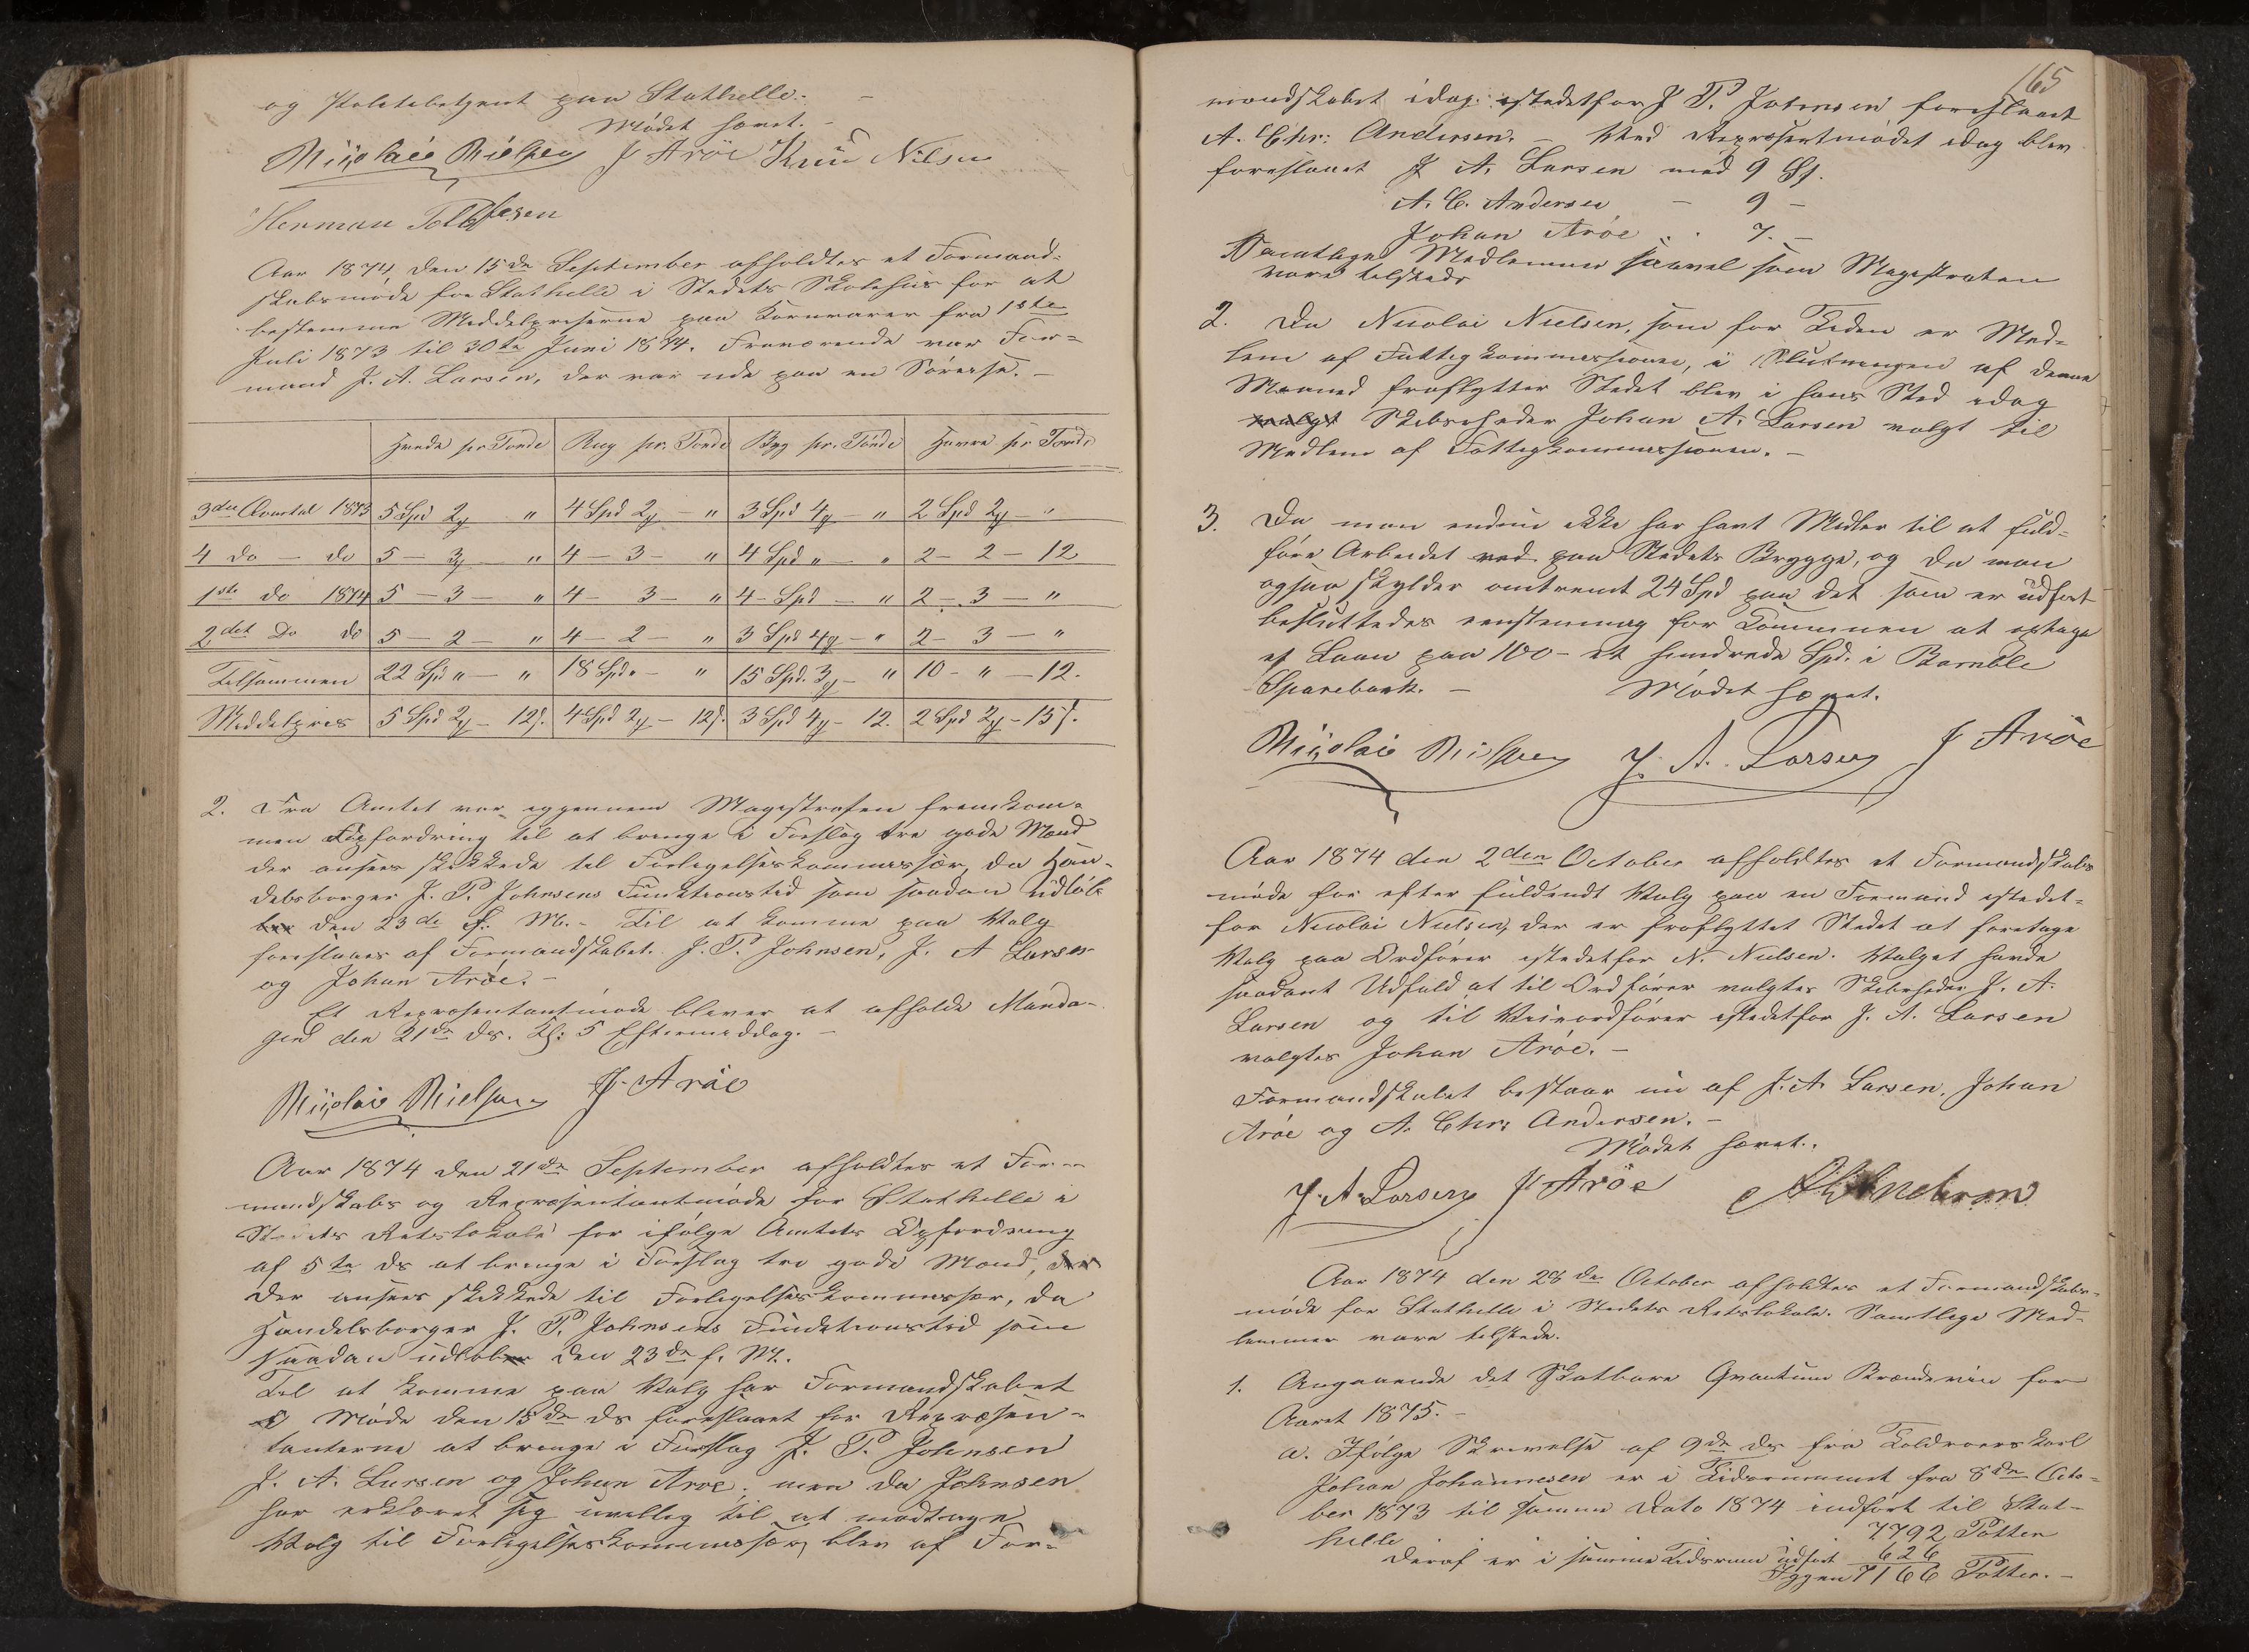 og Politibetjent paa Stathelle. –
Mödet hævet. –
Nicolaie Nielsen J Aröe Knud Nilsen
Herman Tollefsen
Aar 1874 den 15de September afholdtes et Formand-
skabsmöde for Stathelle i Stedets Skolehus for at
bestemme Middelpriserne paa Kornvarer fra 1ste
Juli 1873 til 30te Juni 1874. Fraværende var For=
mand J. A. Larsen, der var ude paa en Söreise. –
Hvede pr Tönde Rug pr. Tönde Byg pr. Tönde Havre pr Tönde
3die Qvartal 1873 5 Spd 2 y – " 4 Spd 2 y – " 3 Spd 4 y – " 2 Spd 2 y – "
4 do – do 5 – 3 y – " 4 – 3 – " 4 Spd " – " 2 – 2 – 12
1ste do 1874 5 – 3 – " 4 – 3 – " 4 – Spd – " 2 – 3 – "
2det Do do 5 – 2 – " 4 – 2 – " 3 Spd 4 y – " 2 – 3 – "
Tilsammen 22 Spd " – " 18 Spd " – " 15 Spd. 3 y – " 10 – " – 12.
Middelpris 5 Spd 2 y – 12 s. 4 Spd 2 y – 12 s. 3 Spd 4 y – 12. 2 Spd 2 y – 15 s.
2. Fra Amtet var igjennem Magistraten fremkom-
men Opfordring til at bringe i Forslag tre gode Mænd
der ansees skikkede til Forligelseskommissær, da Han-
delsborger J. P. Johnsens Funktionstid som saadan udlöb
den 23de f. M. – Til at komme paa Valg
foreslaaes af Formandskabet J. P. Johnsen, J. A Larsen
og Johan Aröe. –
Et Repræsentantmöde bliver at afholde Manda-
gen den 21de ds. Kl: 5 Eftermiddag. –
Nicolaie Nielsen J. Aröe
Aar 1874 den 21de September afholdtes et For-
mandskabs og Repræsentantmöde for Stathelle i
Stedets Retslokale for ifölge Amtets Opfordring
af 5te ds at bringe i Forslag tre gode Mænd, der
der ansees skikkede til Forligelseskommissær, da
Handelsborger J. P. Johnsens Funktionstid som
saadan udlöber den 23de f. M.
Til at komme paa Valg har Formandskabet
i Möde den 15de ds foreslaaet for Repræsen-
tanterne at bringe i Forslag J. P. Johnsen
J. A. Larsen og Johan Aröe, men da Johnsen
har erklæret sig uvillig til at modtage
Valg til Forligelseskommissær, blev af For-
165
mandskabet idag istedetfor J P. Johnsen foreslaaet
A. Chr: Andersen. – Ved Repræsentmödet idag blev
foreslaaet J A. Larsen med 9 St.
A. C. Andersen – 9 –
Johan Aröe . . 7. –
Samtlige Medlemmer saavel som Magistraten
vare tilstede
2. Da Nicolai Nielsen, som for Tiden er Med-
lem af Fattigkommissionen, i Slutningen af denne
Maaned fraflytter Stedet blev i hans Sted idag
valgt Skibsrheder Johan A. Larsen valgt til
Medlem af Fattigkommissionen. –
3. Da man endnu ikke har havt Midler til at fuld-
före Arbeidet ved paa Stedets Brygge, og da man
ogsaa skylder omtrent 24 Spd paa det som er udfört
besluttedes eenstemmig for Kommunen at optage
et Laan paa 100 – et hundrede Spd. i Bamble
Sparebank. – Mödet hævet.
Nicolaie Nielsen J. A. Larsen J Aröe
Aar 1874 den 2den October afholdtes et Formandskabs
möde for efter fuldendt Valg paa en Formand istedet-
for Nicolai Nielsen, der er fraflyttet Stedet at foretage
Valg paa Ordförer istedetfor N. Nielsen. Valget havde
saadant Udfald at til Ordförer valgtes Skibsrheder J. A.
Larsen og til Viceordförer istedetfor J. A. Larsen
valgtes Johan Aröe. –
Formandskabet bestaar nu af J. A. Larsen, Johan
Aröe og A. Chr: Andersen. –
Mödet hævet.
J. A. Larsen J Aröe A C Andersen
Aar 1874 den 28de October afholdtes et Formandskabs-
möde for Stathelle i Stedets Retslokale. Samtlige Med-
lemmer vare tilstede.
1. Angaaende det Skatbare Qvantum Brændeviin for
Aaret 1875. –
a. Ifölge Skrivelse af 9de ds fra Toldroerskarl
Johan Johannesen er i Tidsrummet fra 8de Octo-
ber 1873 til samme Dato 1874 indfört til Stat-
helle 7792 Potter
Deraf er i samme Tidsrum udfört 626
Igjen 7166 Potter. –